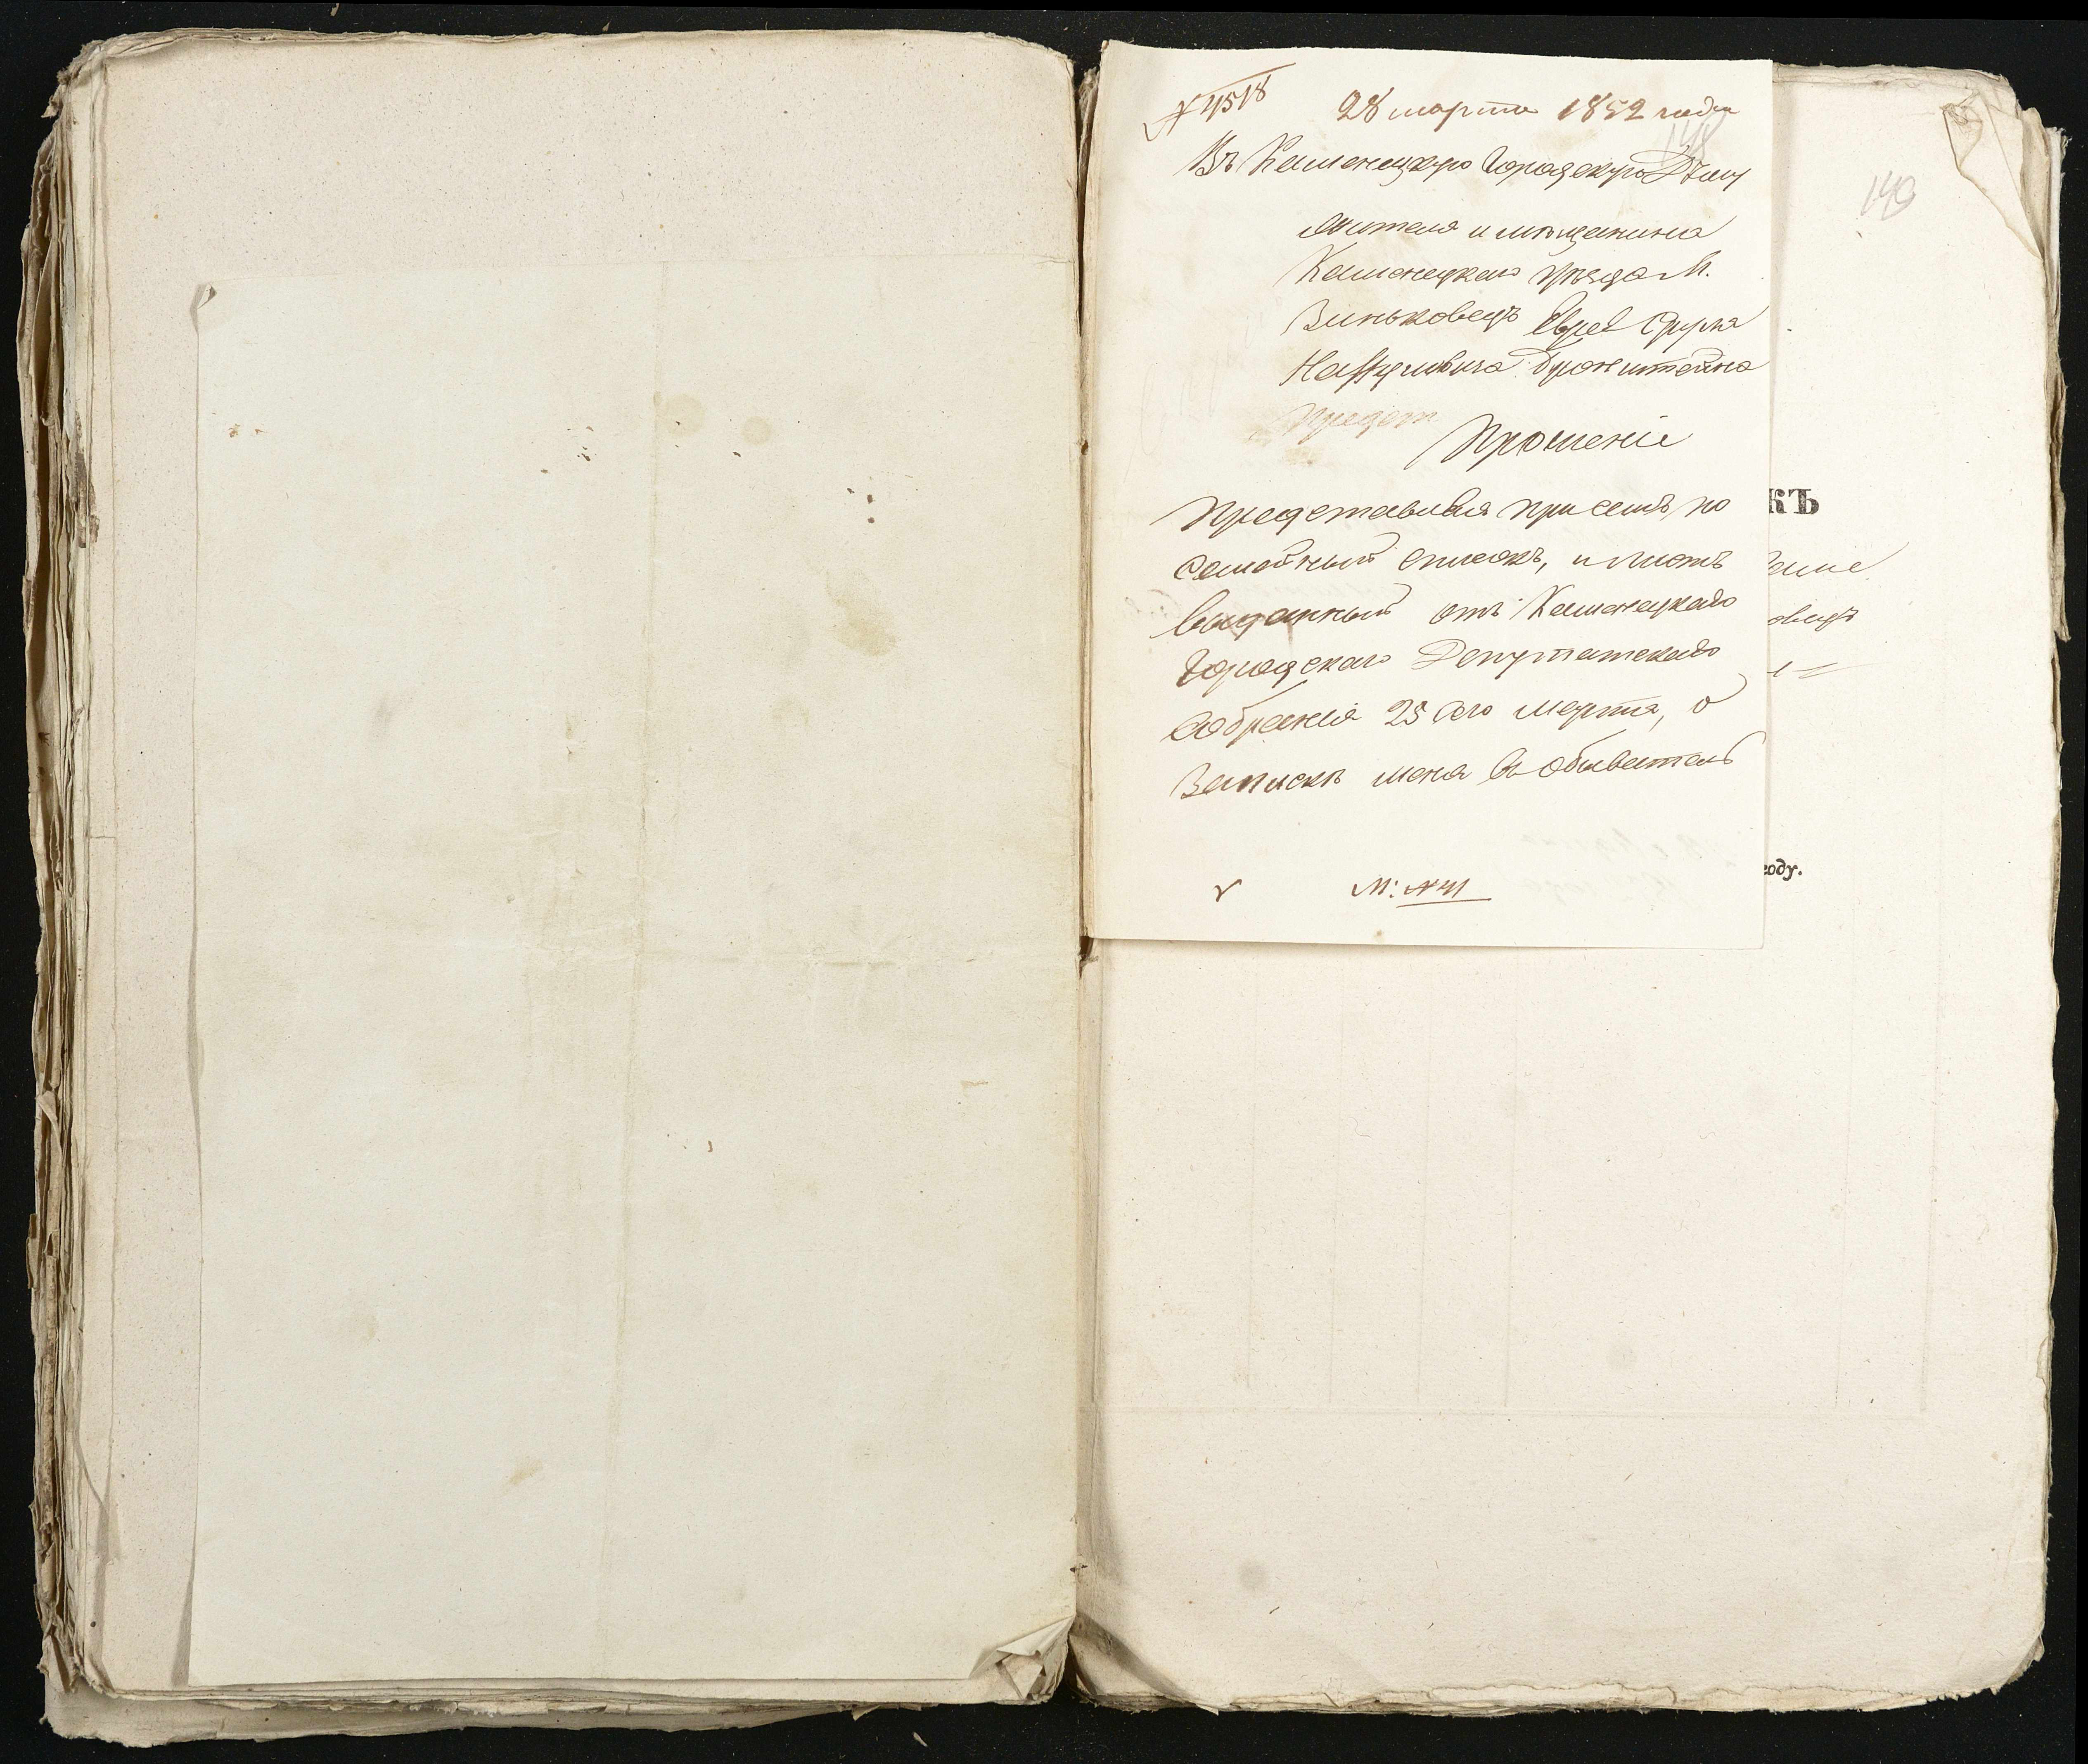 № 4518
28 марта 1852 года
148
Въ Каменецкую Городскую Думу
149
жителя и мѣщанина
Каменецкаго уѣзда М.
Виньковецъ Еврея Сруля
Нафтулевича Бронштейна
Прошеніе
Представляя при семъ по
КЪ
семейный списокъ, и листъ
выданный отъ Каменецкаго
овецъ
Городскаго Депутатскаго
Собранія 25 сего Марта, о
Запискѣ меня въ обыватель
году.
М: № 41